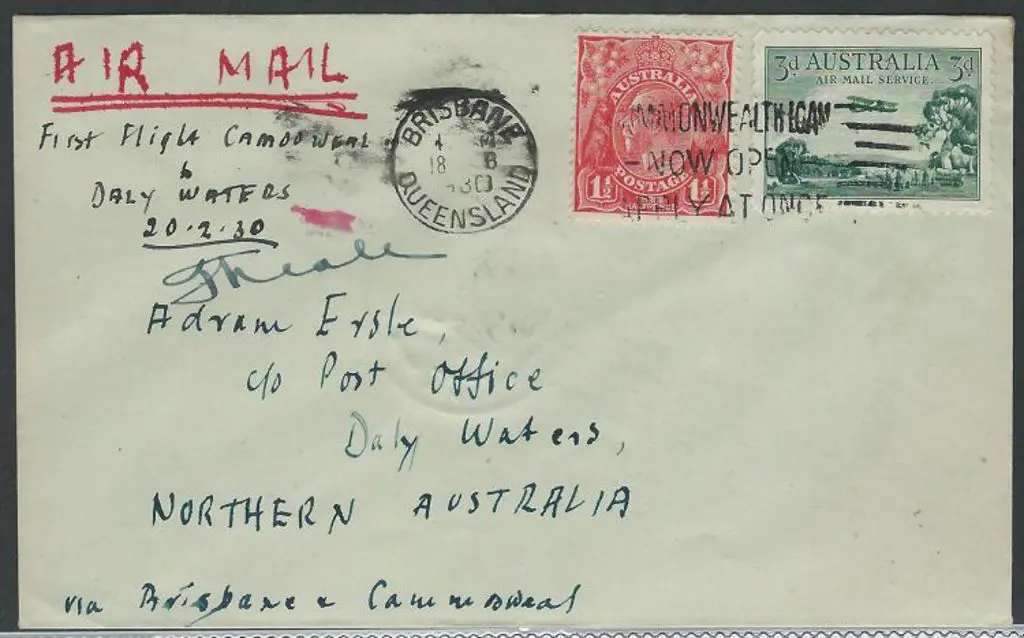 AIR MAIL
First Flight Camooweal
to
DALY WATERS
20·2·30
BRISBANE
18
QUEENSLAND
AUSTRALIA
1½ 1½
POSTAGE
3d AUSTRALIA 3d
AIR MAIL SERVICE.
MMONWEALTH LOAN
NOW OPEN
AT ONCE
Adram Ersle,
c/o Post Office
Daly Waters,
NORTHERN AUSTRALIA
via Brisbane & Cammooweal